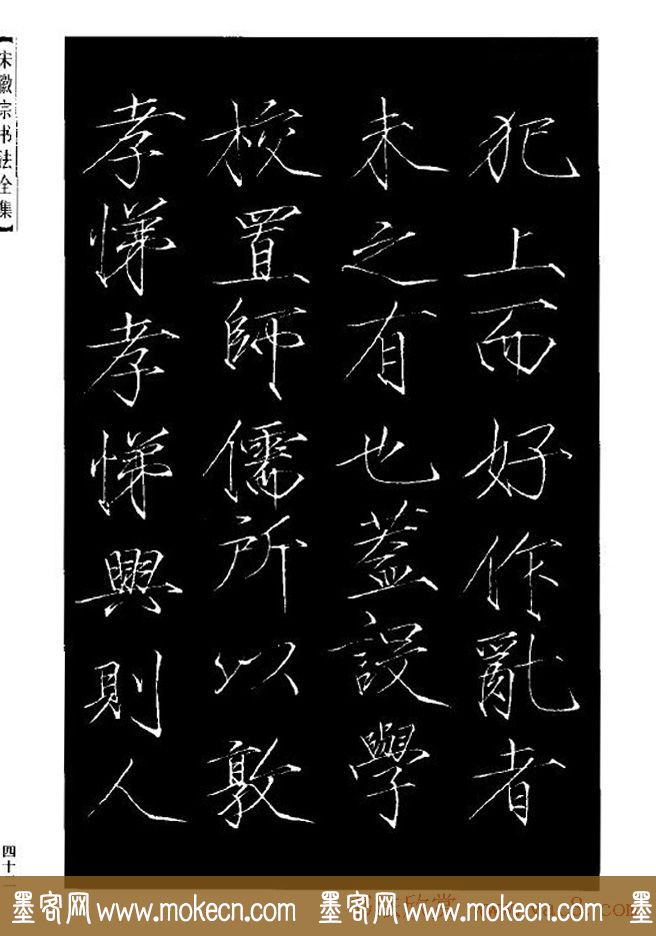 犯上而好作亂者
未之有也蓋設學
校置師儒所以敦
孝悌孝悌興則人
【宋徽宗书法全集】
墨客网 www.mokecn.com 墨客网 www.mokecn.com